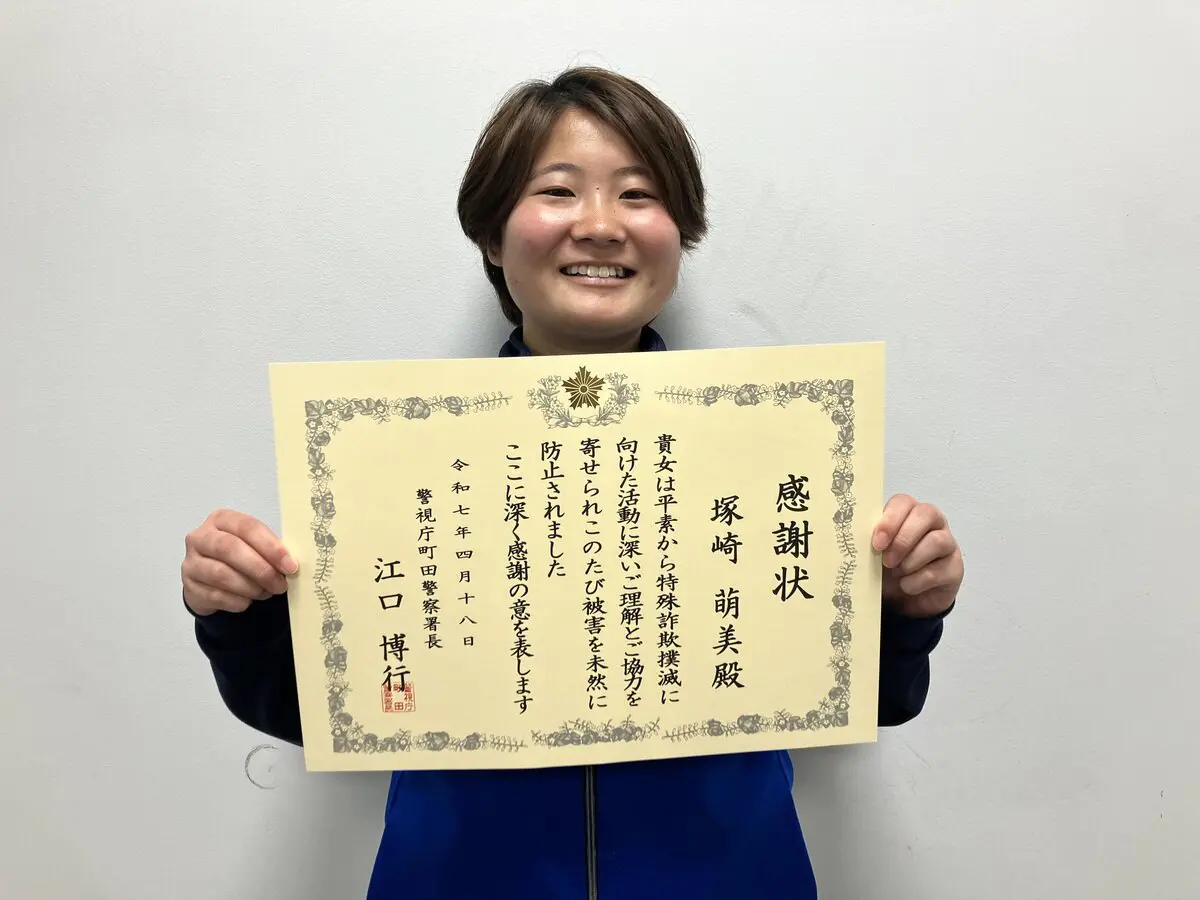 感謝状
塚崎 萌美殿
貴女は平素から特殊詐欺撲滅に
向けた活動に深いご理解とご協力を
寄せられこのたび被害を未然に
防止されました
ここに深く感謝の意を表します
令和七年四月十八日
警視庁町田警察署長
江口 博行